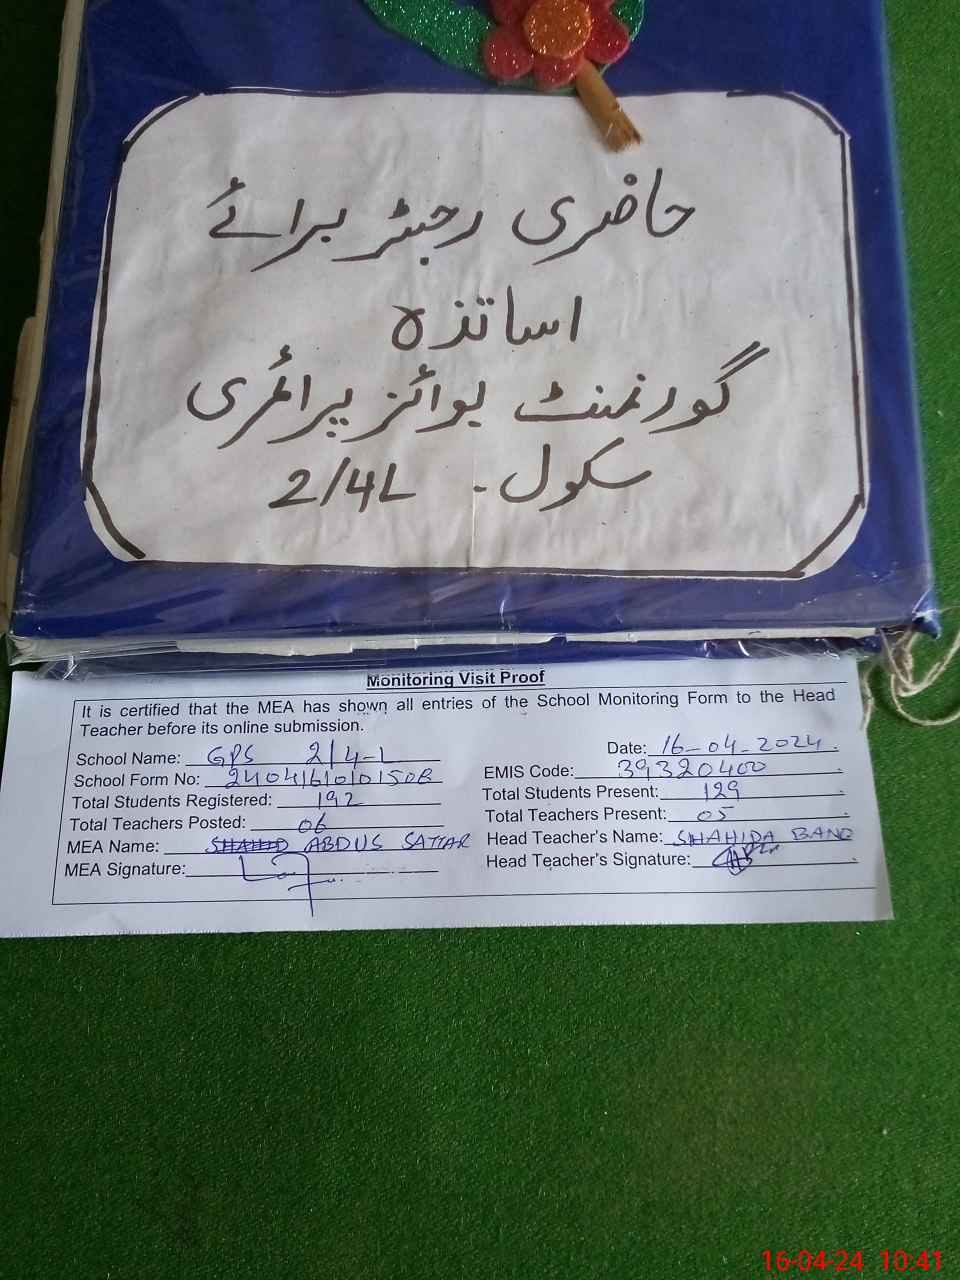 حاضری رجسٹر برائے
اساتذہ
گورنمنٹ بوائز پرائمری
سکول - 2/4L
Monitoring Visit Proof
It is certified that the MEA has shown all entries of the School Monitoring Form to the Head
Teacher before its online submission.
School Name: GPS 2/4-L Date: 16-04-2024
School Form No: EMIS Code: 39320400
Total Students Registered: 192 Total Students Present: 129
Total Teachers Posted: 06 Total Teachers Present: 05
MEA Name: ABDUS SATTAR Head Teacher's Name: SHAHIDA BANO
MEA Signature: Head Teacher's Signature:
16-04-24 10:41